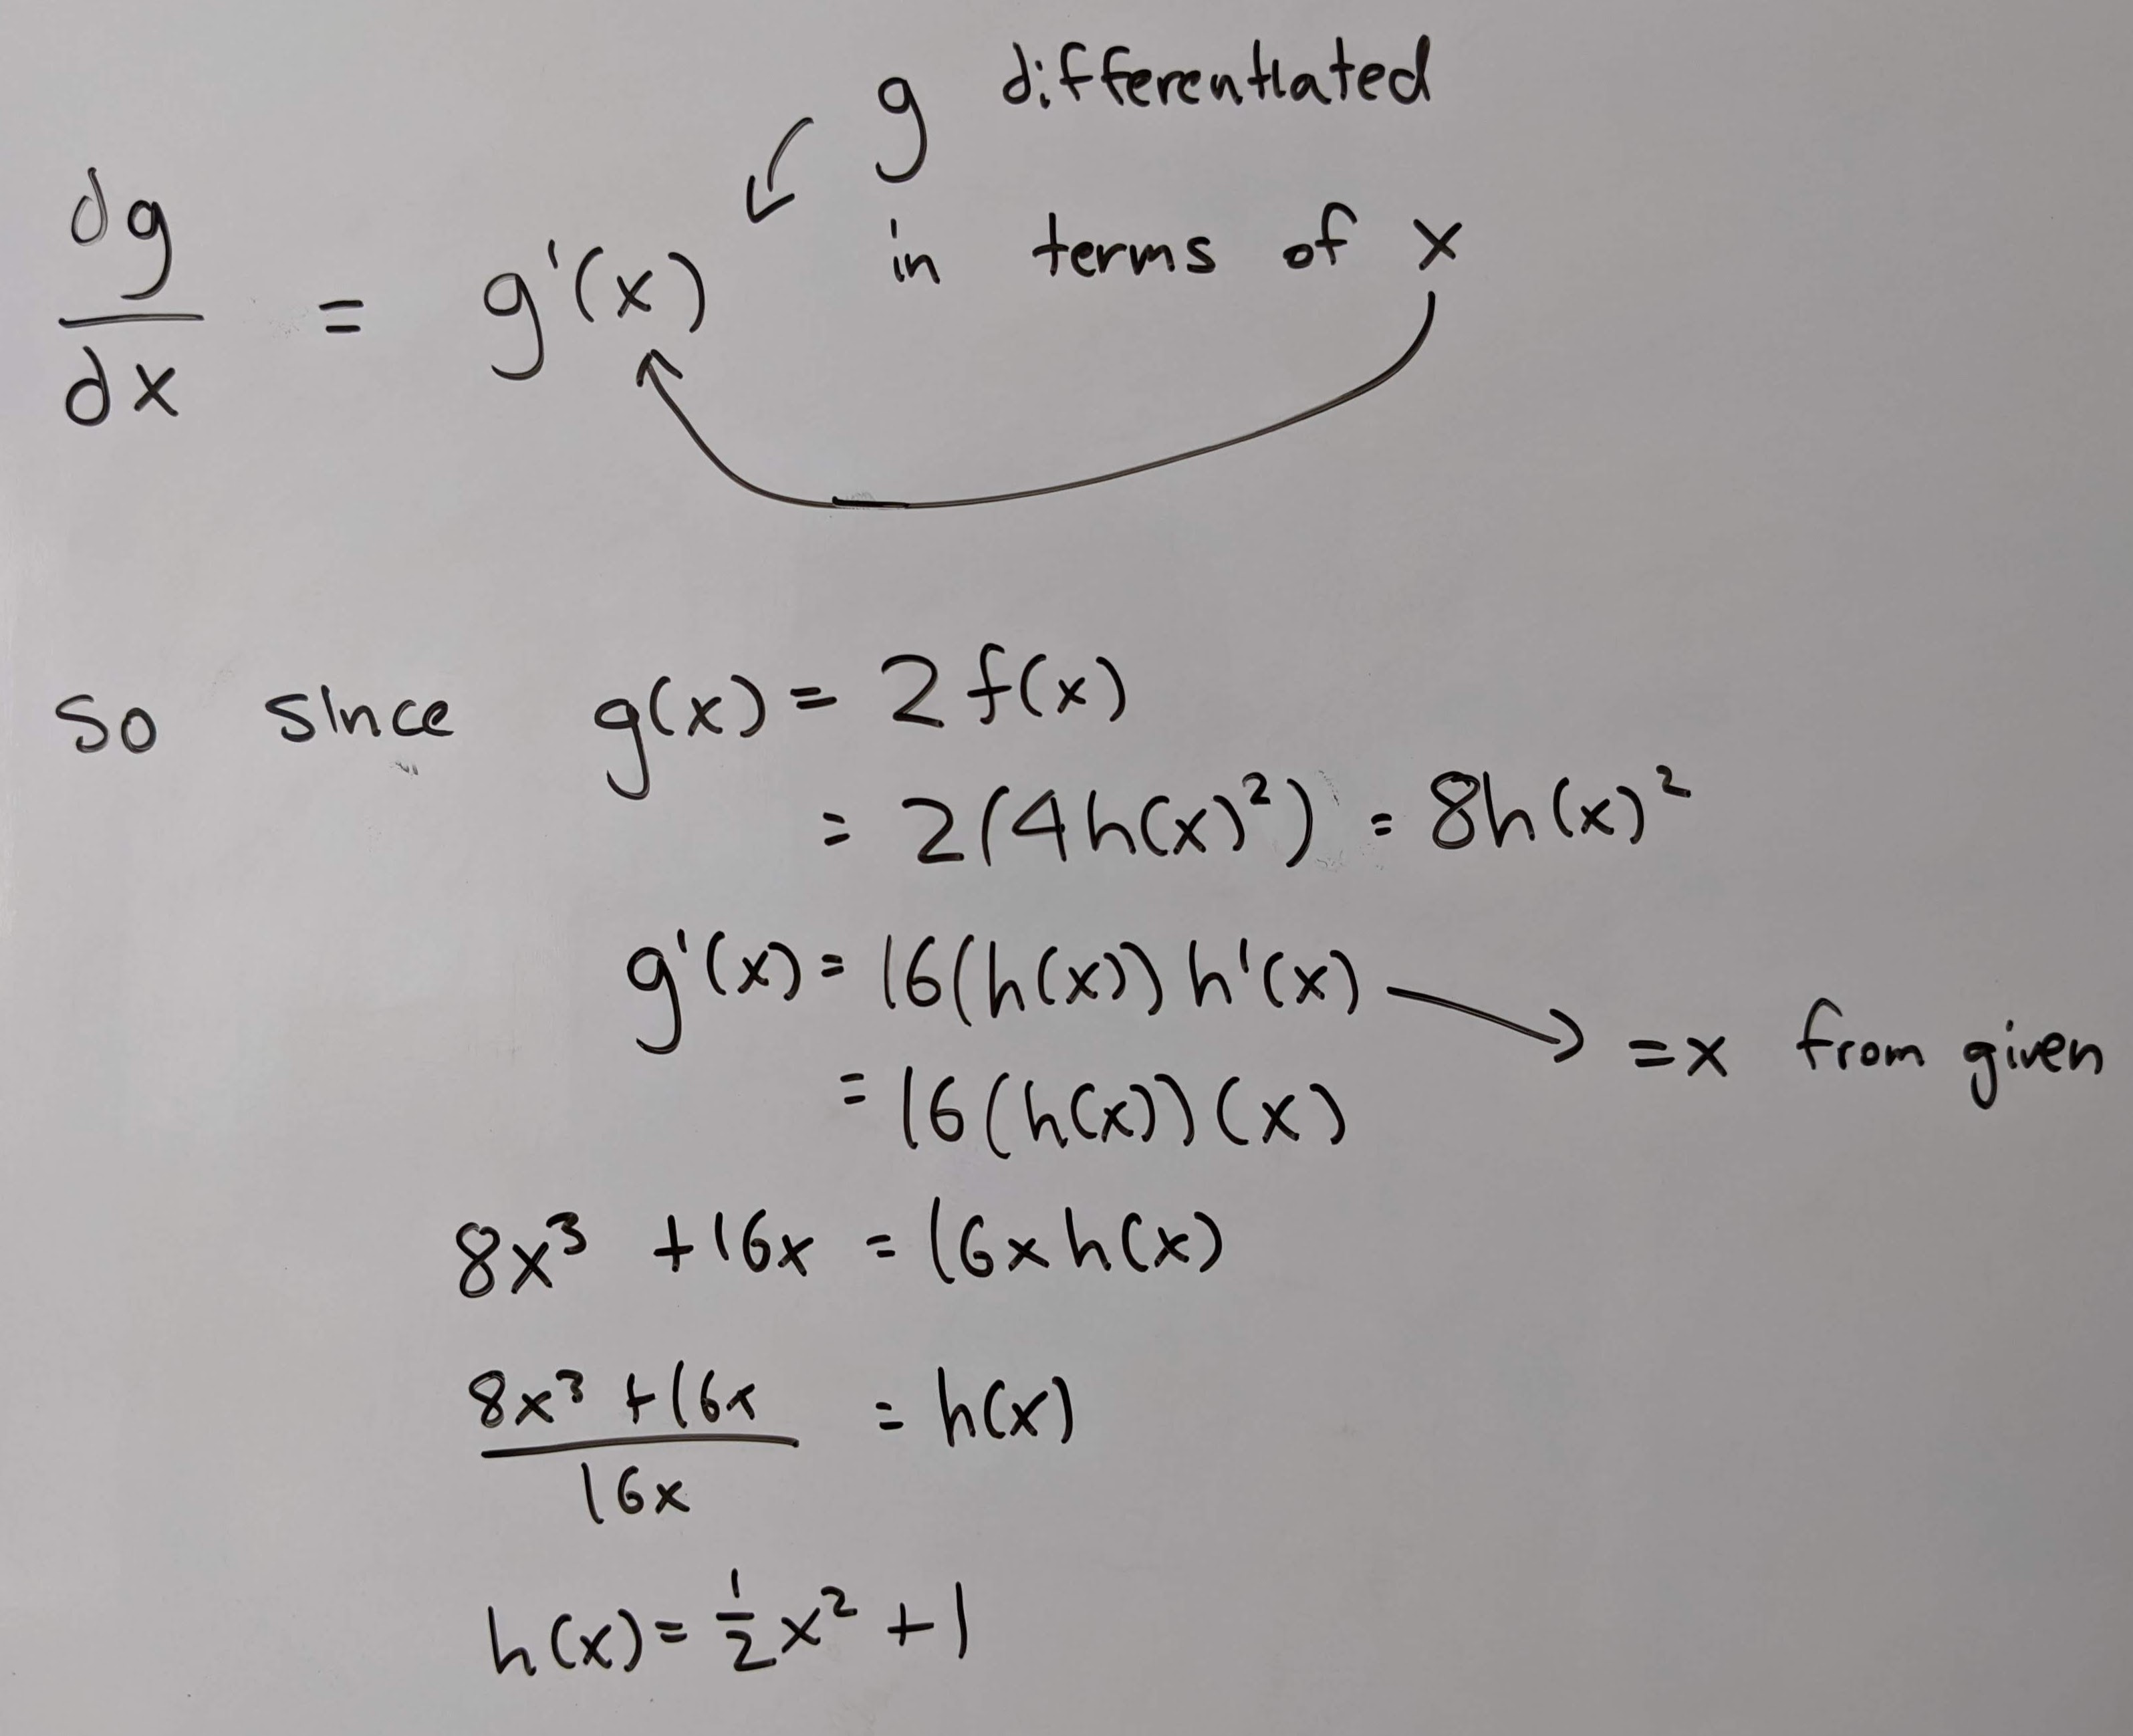 g differentiated
in terms of x
dg/dx = g'(x)
so since g(x) = 2f(x)
= 2(4h(x)²) = 8h(x)²
g'(x) = 16(h(x))h'(x) → =x from given
= 16(h(x))(x)
8x³ + 16x = 16xh(x)
8x³ + 16x / 16x = h(x)
h(x) = 1/2 x² + 1